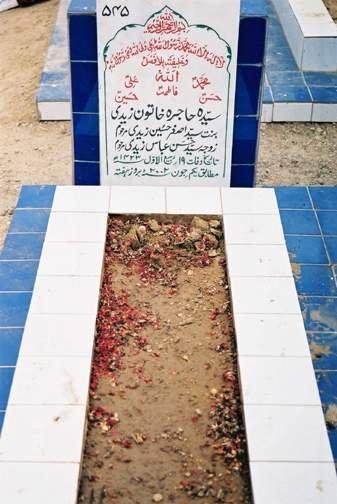 ۵۴۵
بسم اللہ الرحمن الرحیم
لا الہ الا اللہ محمد رسول اللہ علی ولی اللہ وصی رسول اللہ
وخلیفتہ بلا فصل
محمدؐ اللہ علیؑ
حسنؑ فاطمہؑ حسینؑ
سیدہ حاجرہ خاتون زیدی
بنت سید اصغر حسین زیدی مرحوم
زوجہ سید حسن عباس زیدی مرحوم
تاریخ وفات ۱۹ ربیع الاول ۱۴۲۳ھ
مطابق یکم جون ۲۰۰۲ بروز ہفتہ